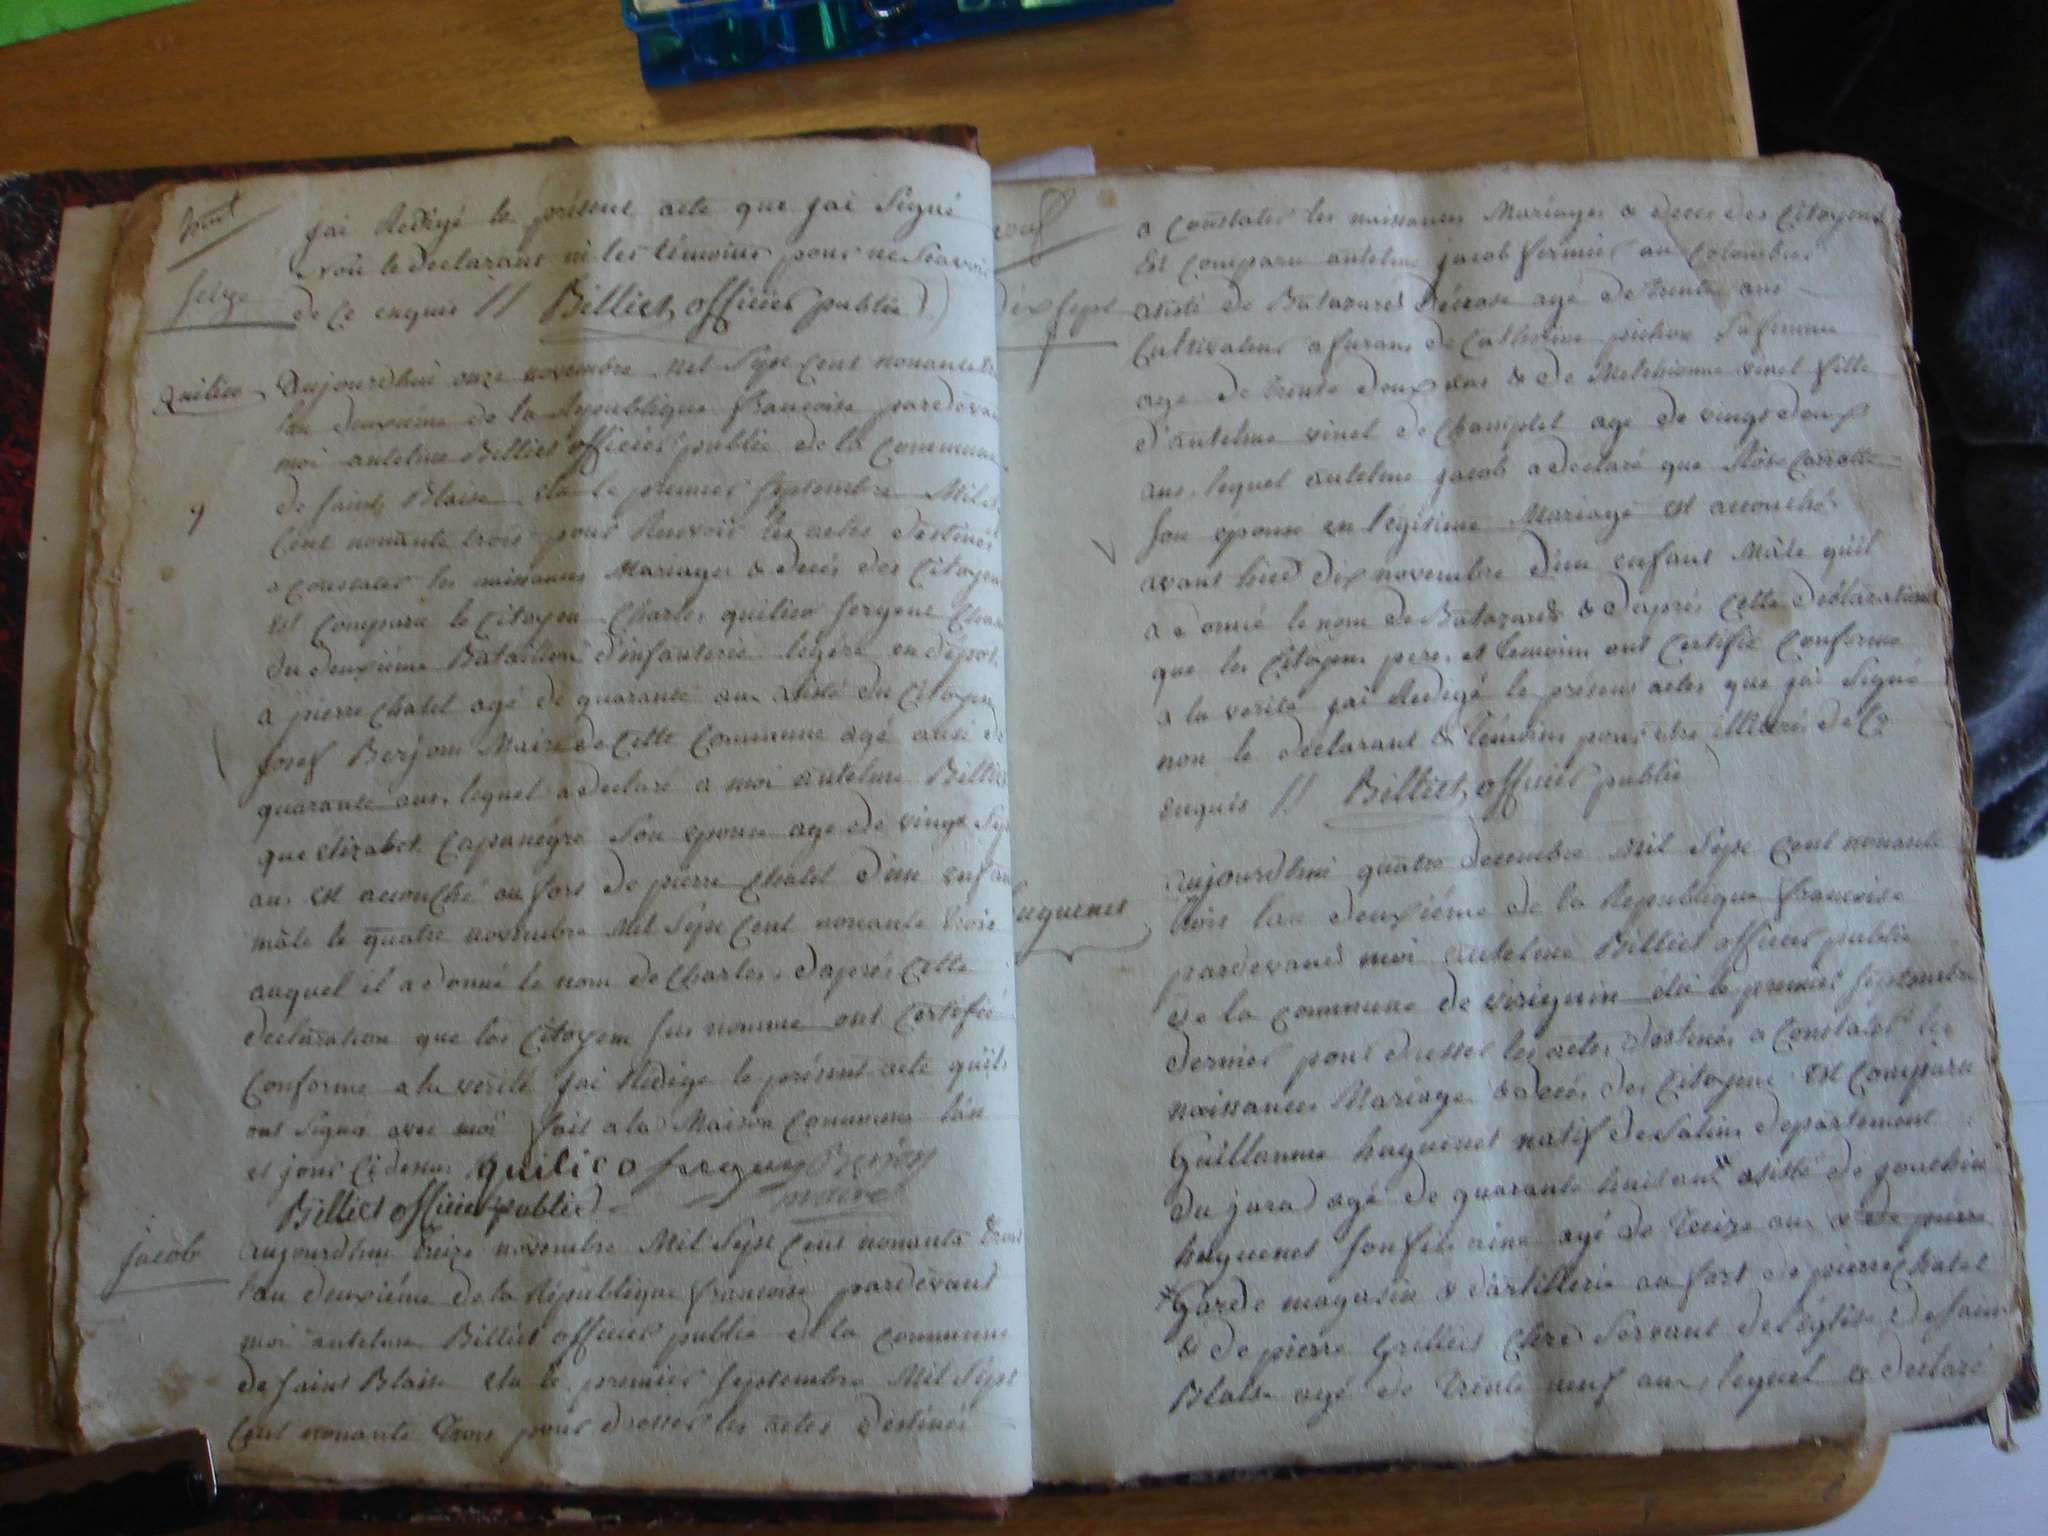 huit
jai Redigé le présent acte que jai Signé
non le declarant ni les témoins pour ne Scavoir
Seize
de ce enquis // Billiet officier public
Quilico
aujourdhui onze novembre mil Sept Cent nonante
lan deuxiéme de la Republique francoise pardevant
moi antelme Billiet officier public de la Commune
de Saint Blaise élu le premier Septembre Mil
9
Cent nonante trois pour Recevoir les actes destinés
a Constater les naissances Mariages & decés des Citoyens
Est Comparu le Citoyen Charles quilico Sergent
du deuxiéme Bataillon d'infanterie legére en dépot
a pierre Chatel agé de quarante ans assisté du Citoyen
Josef Berjon Maire de Cette Commune agé aussi de
quarante ans, lequel a declaré a moi antelme Billiet
que élizabet Capanégre Son epouse agé de vingt Sept
ans est accouché au fort de pierre Chatel d'un enfant
mâle le quatre novembre Mil Sept Cent nonante trois
auquel il a donné le nom de Charles, d'aprés Cette
declaration que les Citoyens Sus nommé ont Certifié
Conforme a la verité jai Redigé le présent acte qu'ils
ont Signé avec moi fait a la Maison Commune l'an
et jour Cidessus quilico Berjon
Billiet officier public maire
jacob
aujourdhui treize novembre Mil Sept Cent nonante trois
lan deuxiéme de la République francoise pardevant
moi antelme Billiet officier public de la Commune
de Saint Blaise élu le premier Septembre Mil Sept
Cent nonante trois pour dresser les actes destinés
neuf
a Constater les naissances Mariages & deces des Citoyens
Est Comparu antelme jacob fermier au Colombier
dix Sept
assisté de Batazard agé de trente ans
Cultivateur a furans de Catherine pichon Sa femme
agé de trente deux ans & de Melchionne vinel fille
d'antelme vinel de Champtel agé de vingt deux
ans, lequel antelme jacob a déclaré que Rose
Son epouse en légitime Mariage est accouché
avant hier dix novembre d'un enfant Mâle qu'il
a donné le nom de Batazard & d'aprés Cette déclaration
que les Citoyens peres et temoins ont Certifié Conforme
a la verité jai Redigé le présent actes que jai Signé
non le declarant & témoins pour etre illiterés de Ce
enquis // Billiet officier public
huguenet
aujourdhui quatre decembre mil Sept Cent nonante
trois lan deuxiéme de la Republique francoise
pardevant moi antelme Billiet officier public
de la Commune de virignin élu le premier Septembre
dernier pour dresser les actes destinés a Constater les
naissances Mariages & decés des Citoyens est Comparu
Guillaume huguenet natif de Salins departement
du jura agé de quarante huit ans assisté de
huguenet Son fils ainé agé de treize ans & de pierre
Garde magasin & d'artillerie au fort de pierre Chatel
& de pierre Grilliet Servant de l'église de Saint
Blaise agé de trente neuf ans, lequel a declaré